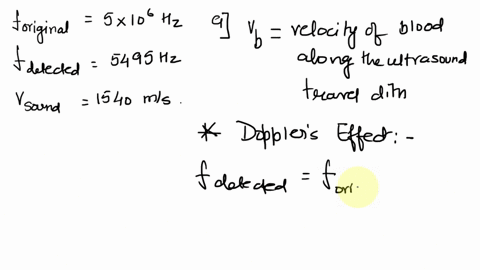 foriginal = 5×10⁶ Hz
fdetected = 5495 Hz
Vsound = 1540 m/s.
a] Vb = velocity of blood
along the ultrasound
travel ditn
* Doppler's Effect:-
fdetected = fori.